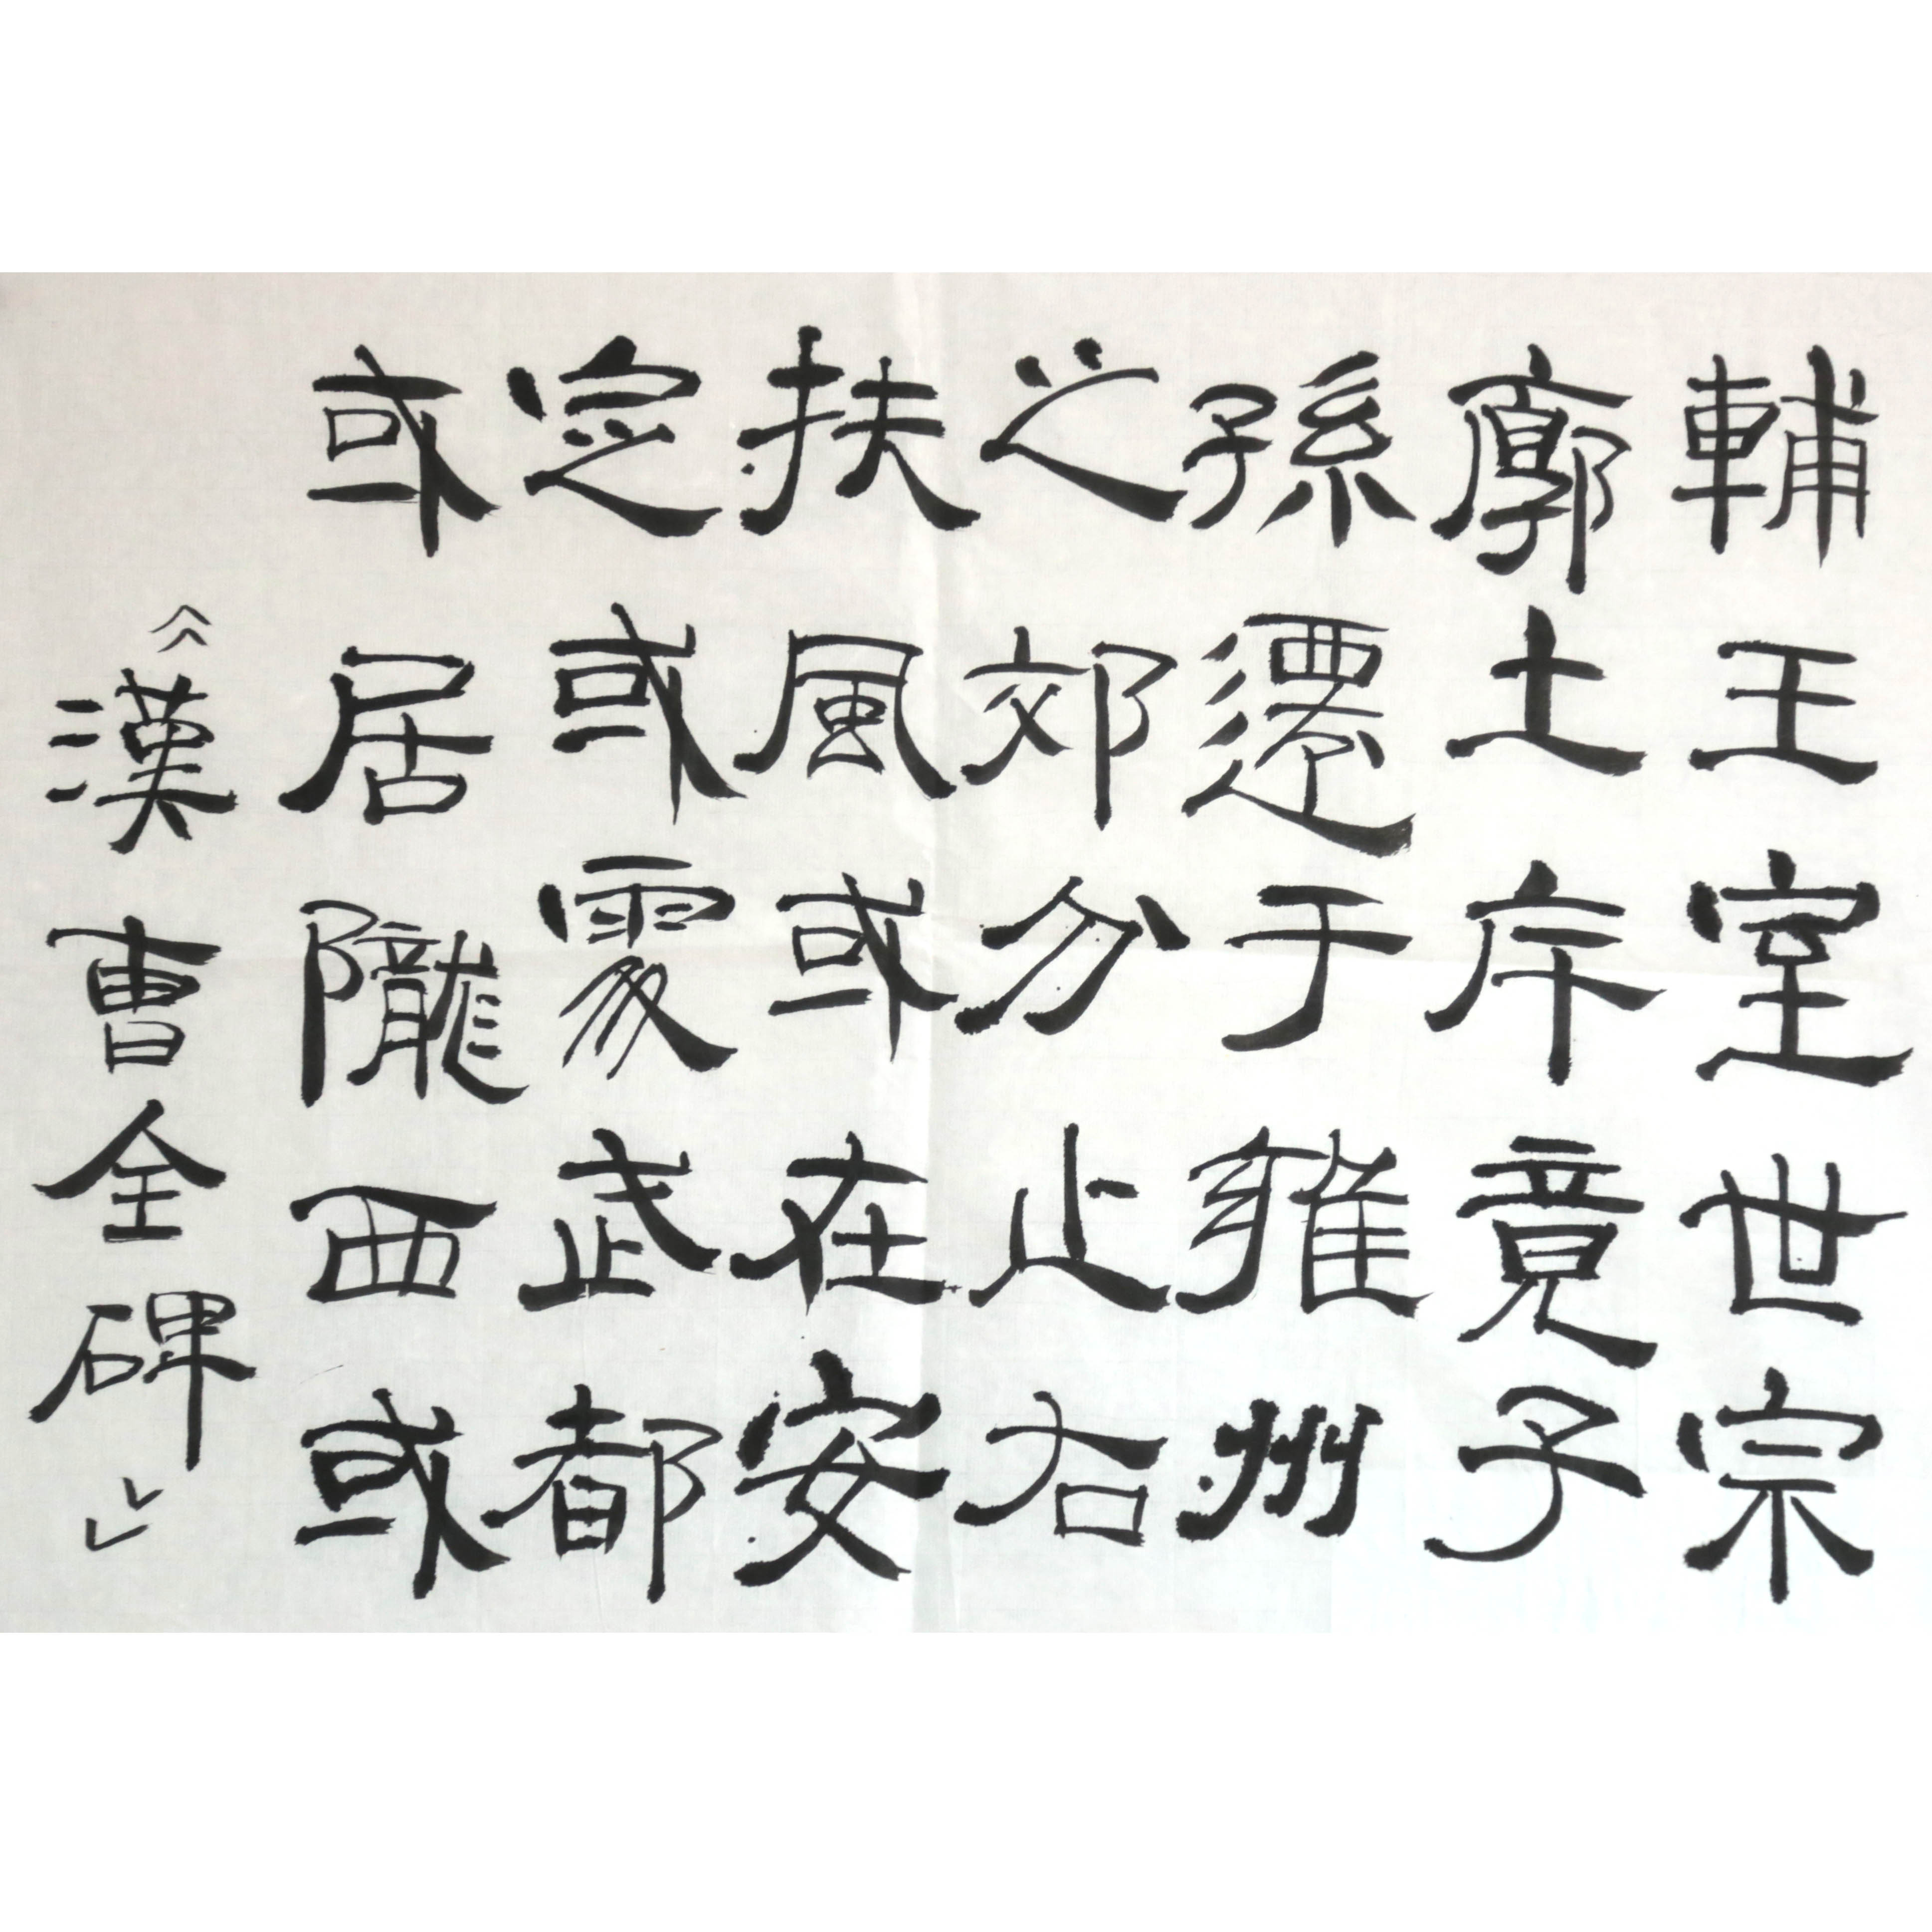 輔王室世宗
廓土庌竟子
孫遷于雍州
之郊分止右
扶風或在安
定或處武都
或居隴西或
《漢曹全碑》